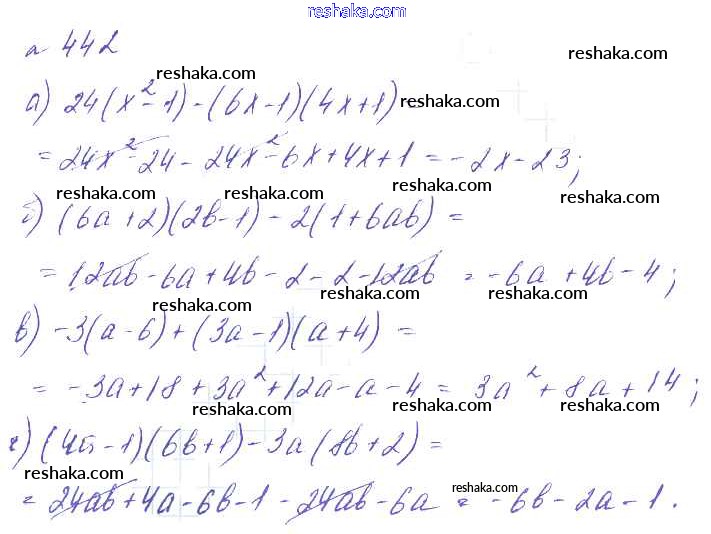 reshaka.com
№ 442
reshaka.com reshaka.com
а) 24(x² - 1) - (6x - 1)(4x + 1) =
reshaka.com
= 24x² - 24 - 24x² - 6x + 4x + 1 = -2x - 23;
reshaka.com reshaka.com reshaka.com reshaka.com
б) (6a + 2)(2b - 1) - 2(1 + 6ab) =
= 12ab - 6a + 4b - 2 - 2 - 12ab = -6a + 4b - 4;
reshaka.com reshaka.com reshaka.com
в) -3(a - 6) + (3a - 1)(a + 4) =
reshaka.com
= -3a + 18 + 3a² + 12a - a - 4 = 3a² + 8a + 14;
reshaka.com reshaka.com reshaka.com
г) (4a - 1)(6b + 1) - 3a(8b + 2) =
reshaka.com reshaka.com reshaka.com
= 24ab + 4a - 6b - 1 - 24ab - 6a = -6b - 2a - 1.